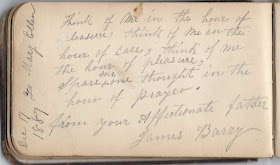 Think of Me in the hour of
Leasure, think of Me in the
hour of Care, think of Me
the hour of pleasure,
Spare me one thought in the
hour of Prayer.
from your Affectionate father
James Barry
Dec 17 to Mary Ellen
1887